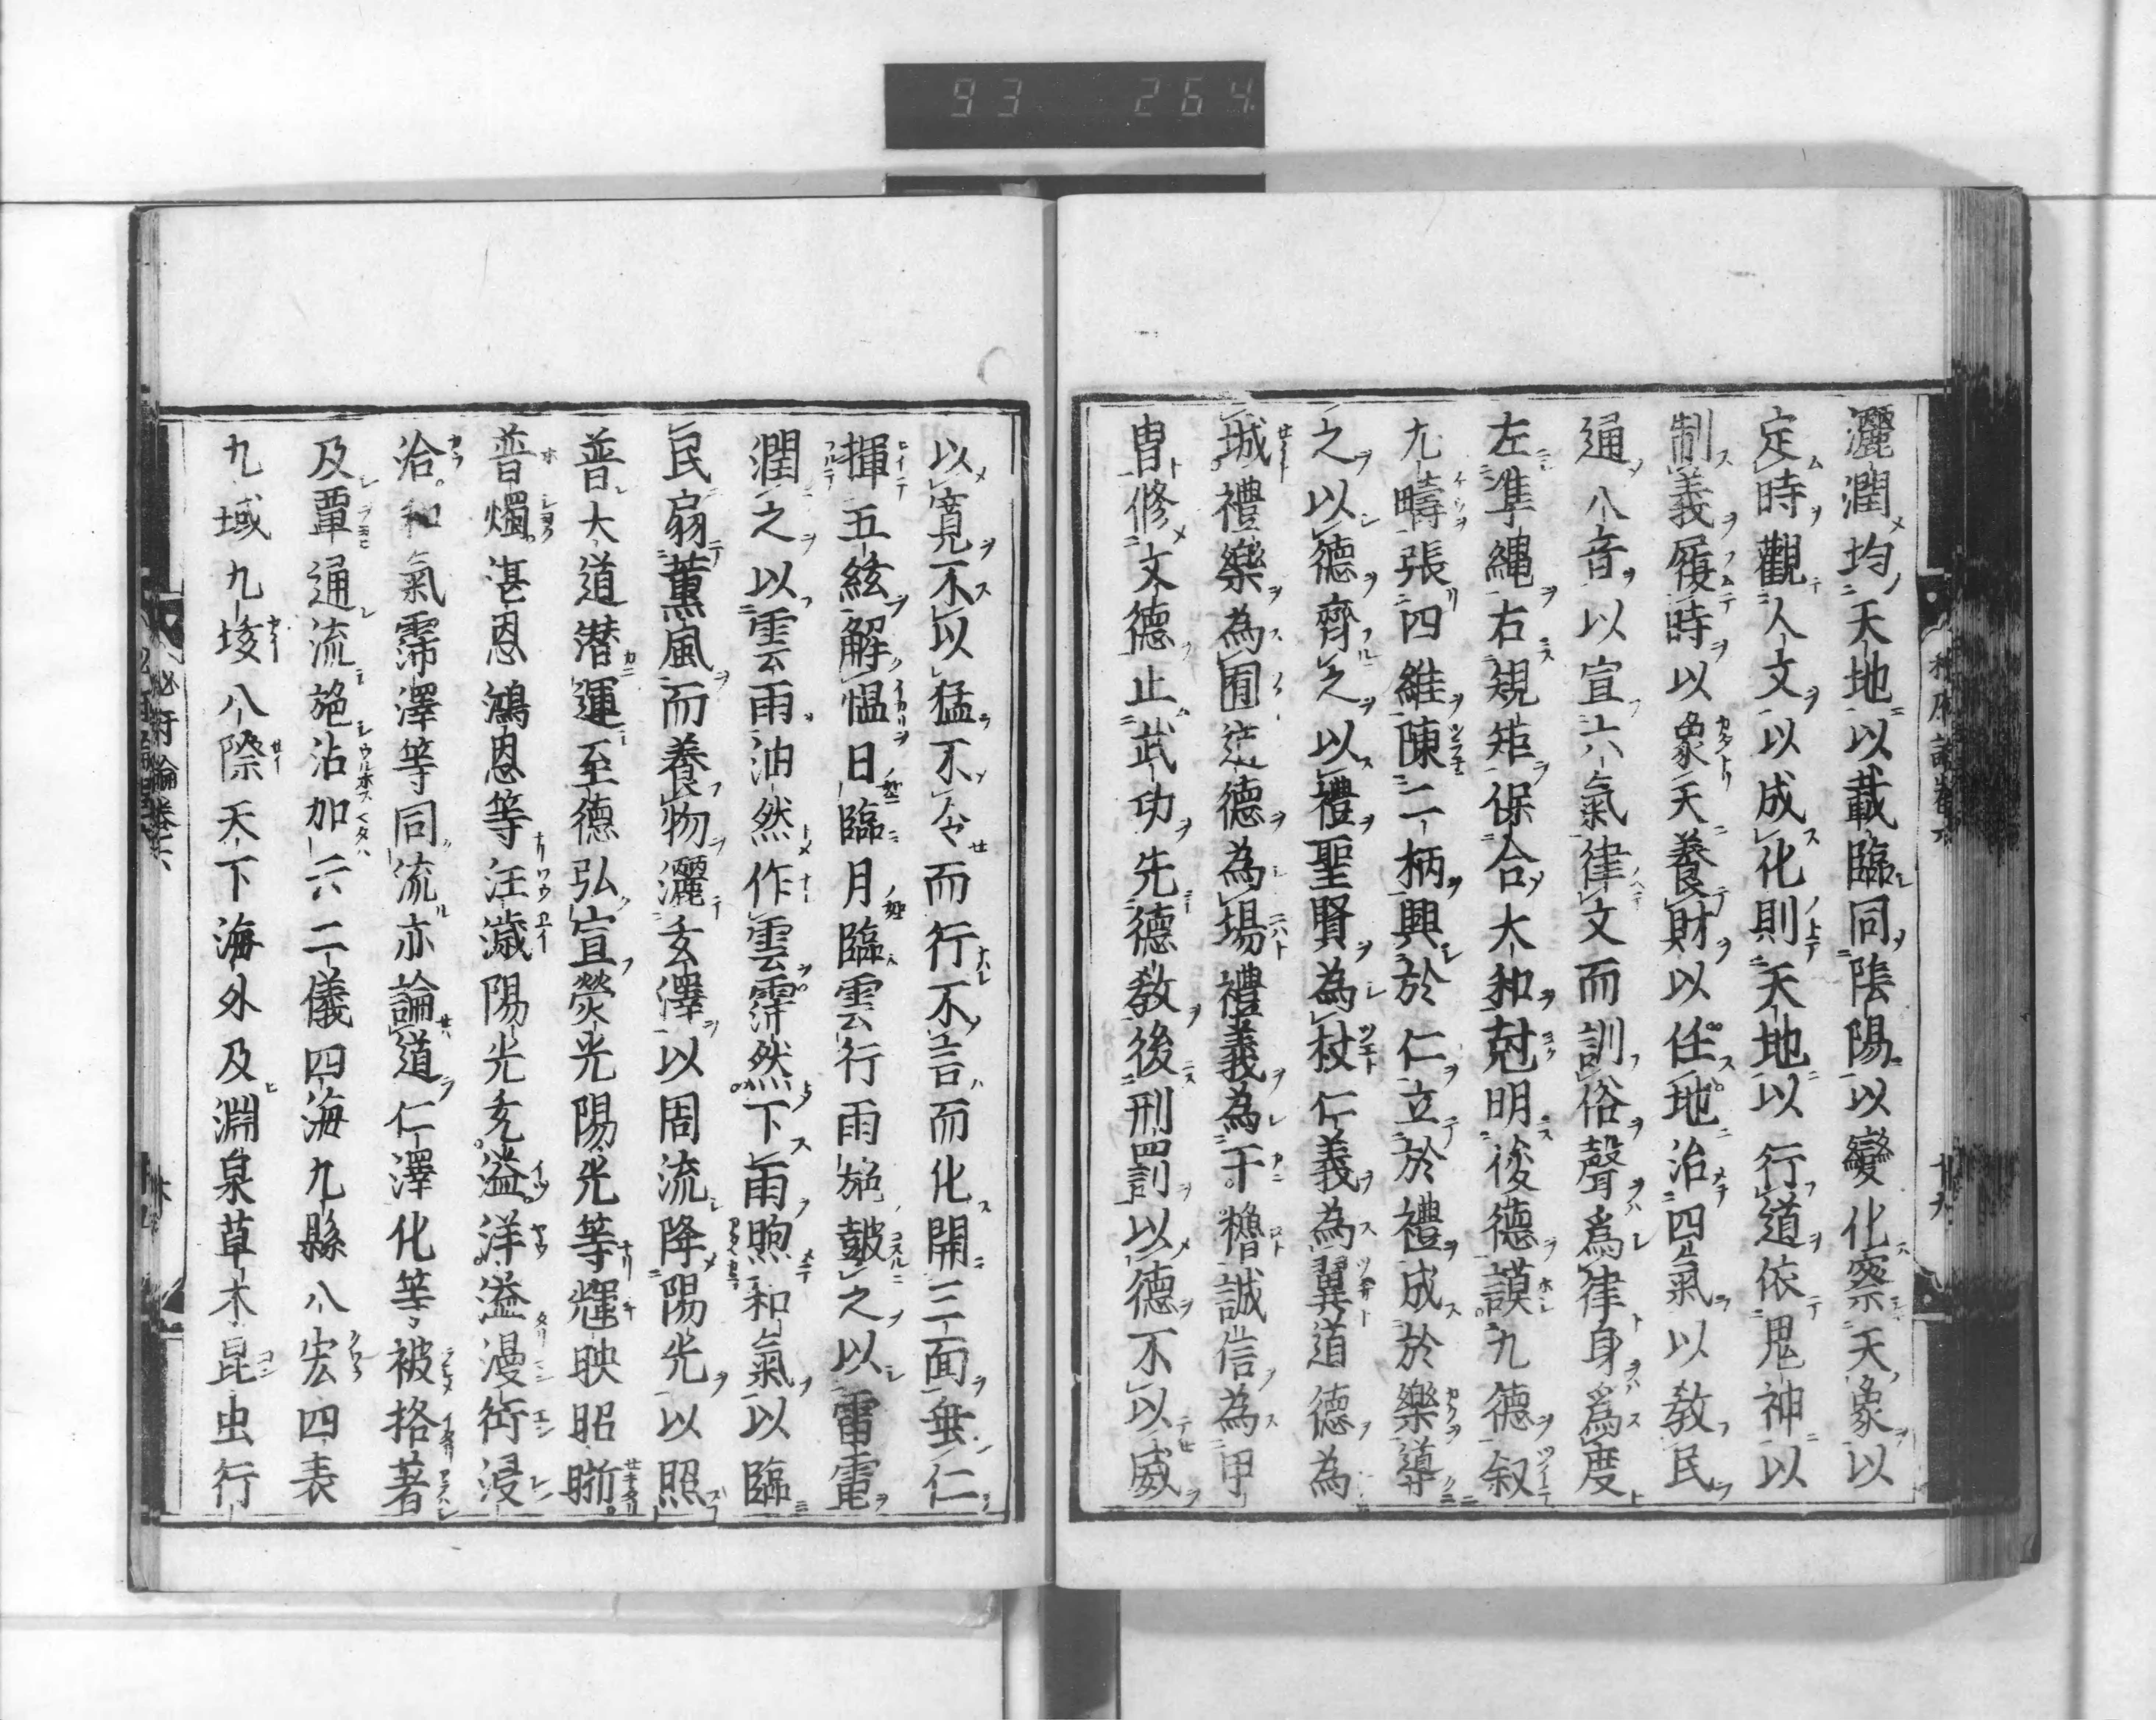 93 264
灑潤均天地以載臨同陰陽以變化察天象以
定時觀人文以成化則天地以行道依鬼神以
制義履時以象天養財以任地治四氣以教民
通八音以宣六氣律文而訓俗聲爲律身爲度
左準繩右規矩保合大和尅明俊德謨九德叙
九疇張四維陳二柄興於仁立於禮成於樂導
之以德齊之以禮聖賢為杖仁義為翼道德為
城禮樂為囿道德為場禮義為干櫓誠信為甲
冑修文德止武功先德教後刑罰以德不以威
以寬不以猛不令而行不言而化開三面垂仁
揮五絃解慍日臨月臨雲行雨施鼓之以雷電
潤之以雲雨油然作雲霈然下雨煦和氣以臨
民扇薰風而養物灑玄澤以周流降陽光以照
普大道潜運至德弘宣熒光陽光等輝映昭晣
普燭湛恩鴻恩等汪濊陽光充溢洋溢漫衍浸
洽和氣霈澤等同流亦論道仁澤化等被格著
及覃通流施沾加六二儀四海九縣八宏四表
九域九垓八際天下海外及淵泉草木昆虫行